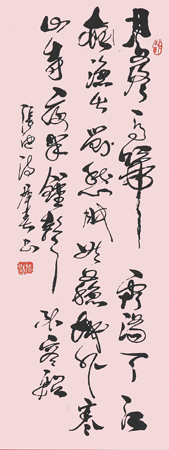 月落烏啼霜滿天江
楓漁火對愁眠姑蘇城外寒
山寺夜半鐘聲到客船
張繼詩